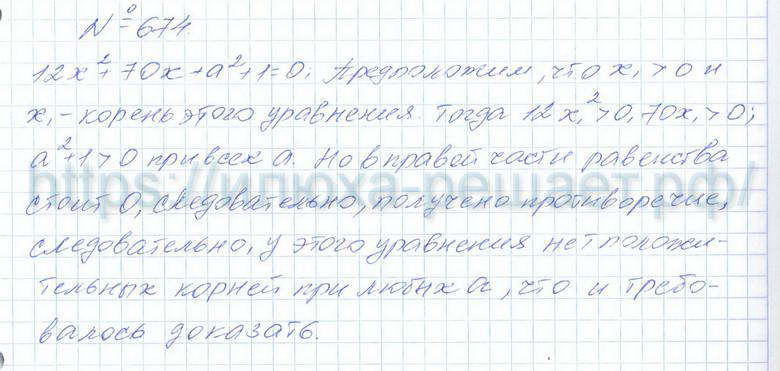 № 674.
12x² + 70x + a² + 1 = 0; Предположим, что x₁ > 0 и
x₁ - корень этого уравнения. Тогда 12x₁² > 0, 70x₁ > 0;
a² + 1 > 0 при всех a. Но в правой части равенства
https://клюха-решает.рф/
стоит 0, следовательно, получено противоречие,
следовательно, у этого уравнения нет положи-
тельных корней при любых a, что и требо-
валось доказать.